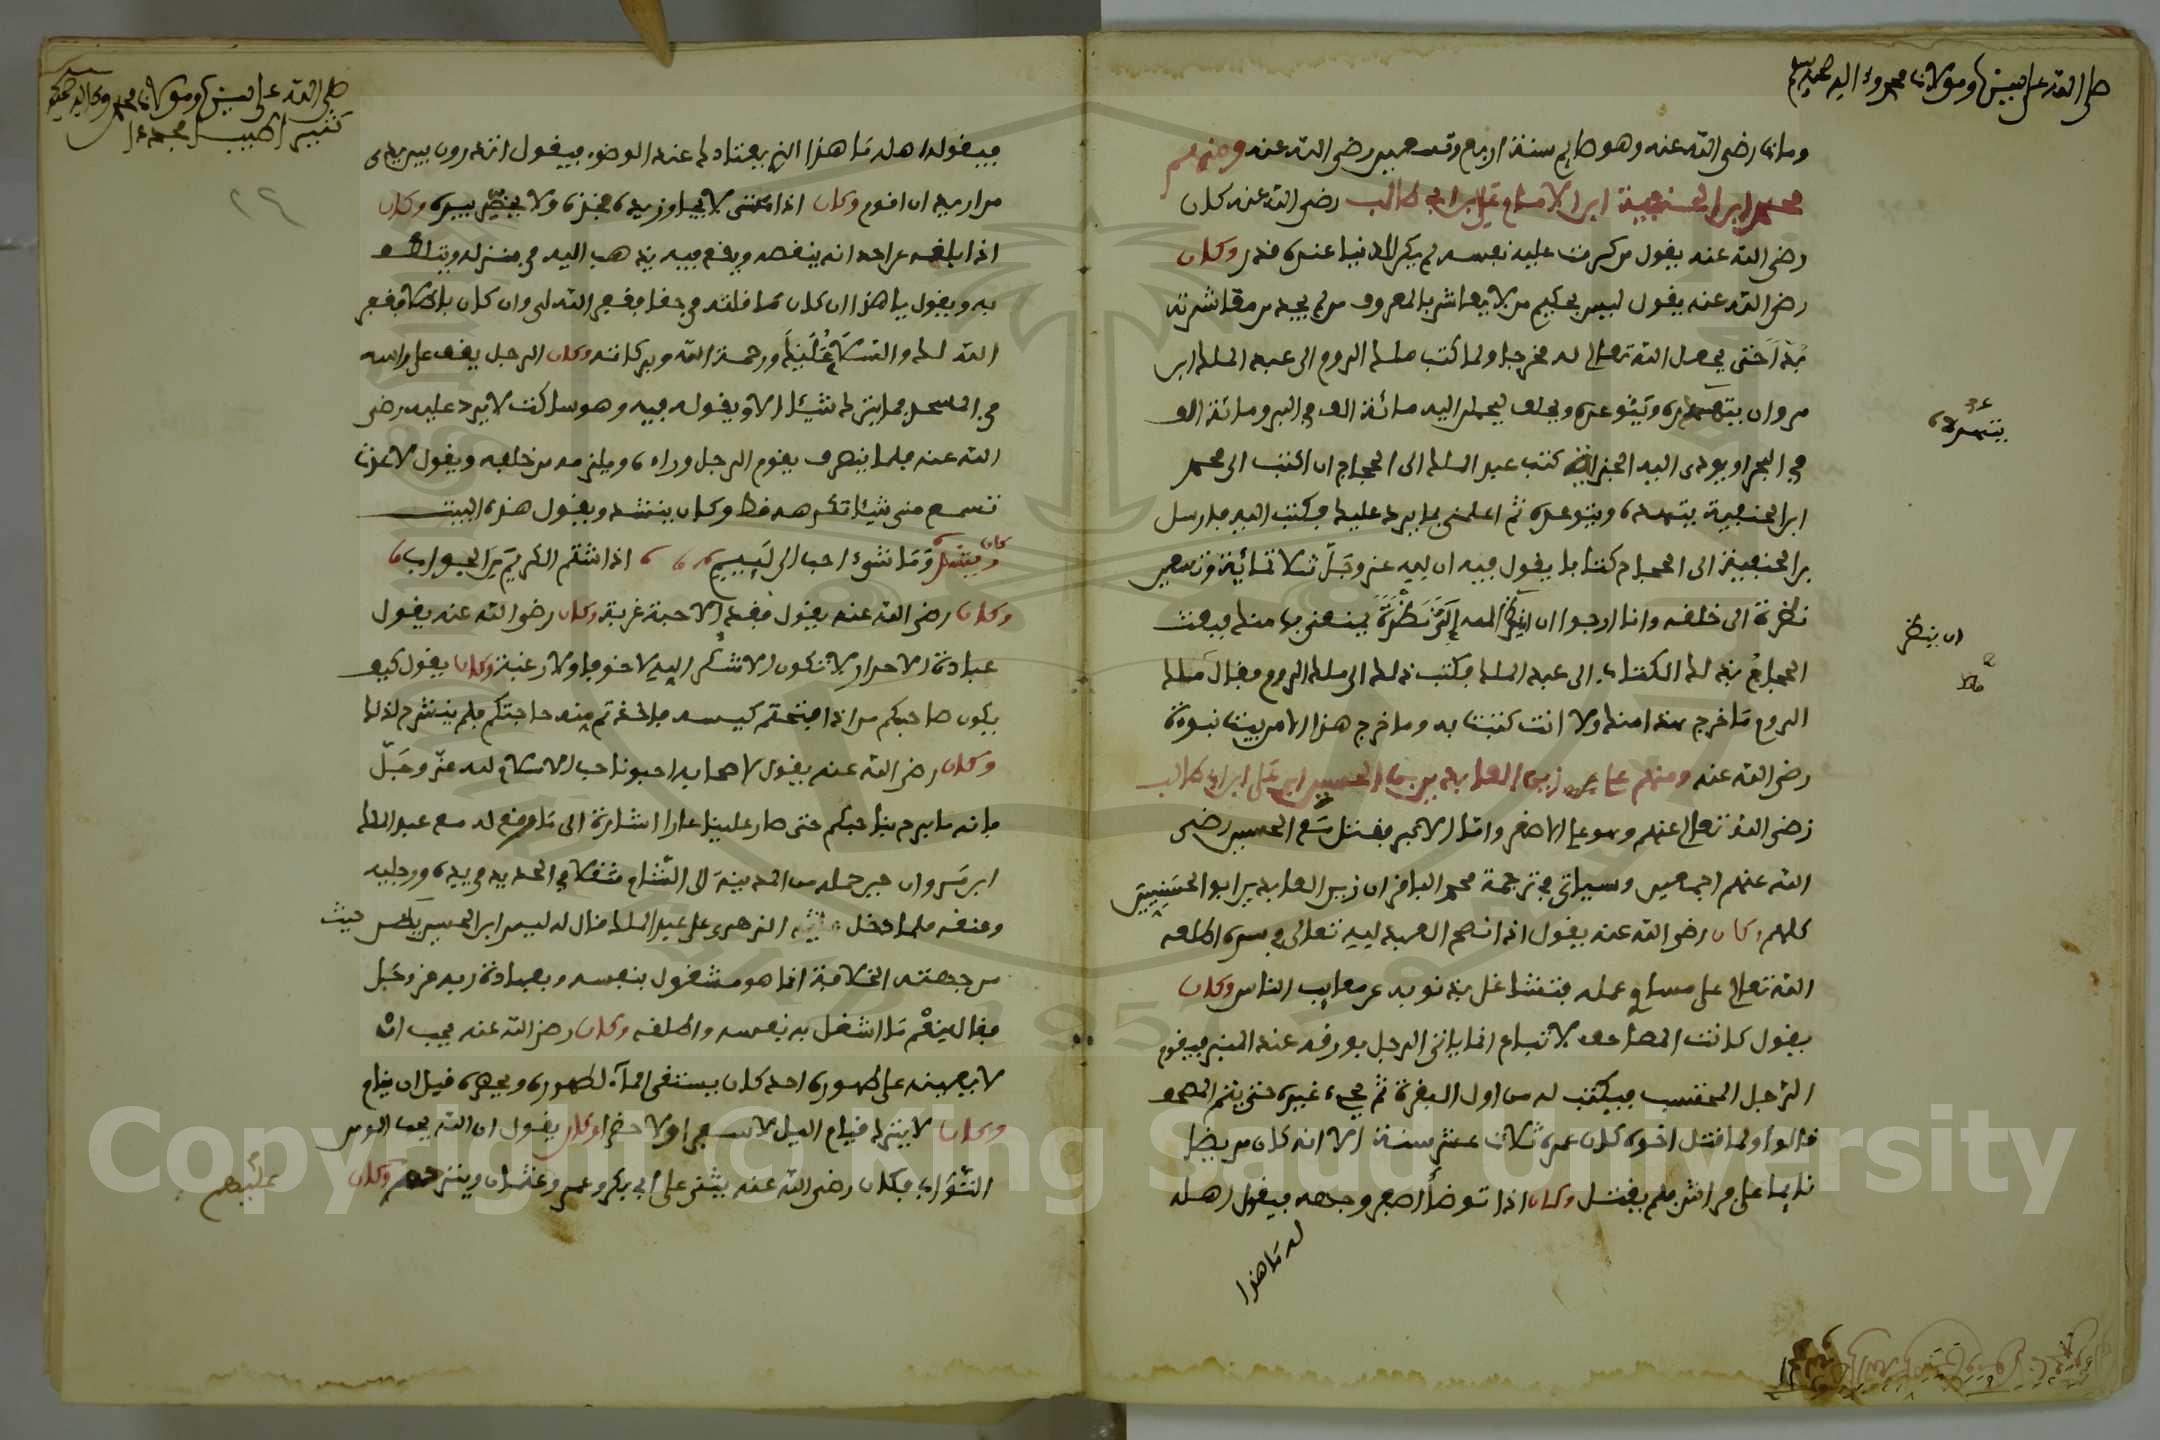 صلى الله على نبينا ومولانا محمد وءاله وصحبه وسلم
ومات رضي الله عنه وهو صايم سنة اربع وتسعين رضي الله عنه ومنهم
محمد ابن الحنفية ابن الامام علي ابن ابي طالب رضي الله عنه كان
رضي الله عنه يقول من كرمت عليه نفسه لم يكن للدنيا عنده قدر وكان
رضي الله عنه يقول ليس بحكيم من لا يعاشر بالمعروف من لم يجد من معاشرته
بدا حتى يجعل الله تعالى له مخرجا ولما كتب ملك الروم الى عبد الملك ابن
مروان يتهدده ويتوعده ويحلف ليحملن اليه مائة الف في البر ومائة الف
في البحر او يودي اليه الجزية كتب عبد الملك الى الحجاج ان اكتب الى محمد
ابن الحنفية يتهدده ويتوعده ثم اعلمني بما يرد عليك فكتب اليه فارسل
بن الحنفية الى الحجاج كتابا يقول فيه ان لله عز وجل ثلاثمائة وستين
نظرة الى خلقه وانا ارجوا ان ينظر الله الي نظرة يمنعني بها منك فبعث
الحجاج بذلك الكتاب الى عبد الملك فكتب ذلك الى ملك الروم فقال ملك
الروم ما خرج هذا منك ولا انت كتبت به وما خرج هذا الا من بيت نبوة
رضي الله عنه ومنهم علي زين العابدين بن الحسين ابن علي ابن ابي طالب
رضي الله تعالى عنهم وهو علي الاصغر واما الاكبر فقتل مع الحسين رضي
الله عنهم اجمعين وسياتي في ترجمة محمد الباقر ان زين العابدين ابو الحسينيين
كلهم وكان رضي الله عنه يقول اذا نصح العبد لله تعالى في سره اطلعه
الله تعالى على مساوي عمله فتشاغل بذنوبه عن معايب الناس وكان
يقول كانت المصاحف لا تباع انما ياتي الرجل بورقه عند المنبر فيقوم
الرجل المحتسب فيكتب له من اول البقرة ثم يجيء غيره حتى يتم المصحف
قالوا ولما قتل اخوه كان عمره ثلاث عشر سنة الا انه كان مريضا
نايما على فراش فلم يقتل وكان اذا توضأ اصفر وجهه فيقول اهله
له ما هذا
يتهدده
ان ينظر
صلى الله على نبينا ومولانا محمد وءاله وصحبه
فيقول اهله ما هذا الذي يعتادك عند الوضوء فيقول اتدرون بين يدي
من اريد ان اقوم وكان اذا مشى لا يجاوز يده فخذه ولا يخطر بيده وكان
اذا بلغه عن احد انه ينقصه ويقع فيه يذهب اليه في منزله ويتلطف
به ويقول يا هذا ان كان ما قلته في حقا فغفر الله لي وان كان باطلا فغفر
الله لك والسلام عليك ورحمة الله وبركاته وكان الرجل يقف على راسه
في المسجد فما يترك شيئا الا ويقوله فيه وهو ساكت لا يرد عليه رضي
الله عنه فلما ينصرف يقوم الرجل وراه ويلزمه من خلفه ويقول لا عدت
تسمع مني شيئا تكرهه قط وكان ينشد ويقول هذه البيت
وما شيء احب الى لئيم اذا شتم الكريم من الجواب
وكان رضي الله عنه يقول فقد الاحبة غربة وكان رضي الله عنه يقول
عبادة الاحرار لا تكون الا شكرا لله لا خوفا ولا رغبة وكان يقول كيف
يكون صاحبكم من اذا فتحتم كيسه فاخذتم منه حاجتكم فلم ينشرح لذلك
وكان رضي الله عنه يقول لاصحابه احبونا حب الاسلام لله عز وجل
فانه ما برح بنا حبكم حتى صار علينا عارا اشارة الى ما وقع له مع عبد الملك
ابن مروان حين حمله من المدينة الى الشام مثقلا في الحديد في يديه ورجليه
وعنقه فلما دخل الزهري على عبد الملك قال له ليس ابن الحسين يظن حيث
من جهته الخلافة انما هو مشغول بنفسه وبعبادة ربه عز وجل
فقال نعم ما اشغل به نفسه واطلقه وكان رضي الله عنه يحب ان
لا يعينه على طهوره احد كان يستقي الماء لطهوره ويحضره قبل ان ينام
وكان لا يترك قيام الليل لا سفرا ولا حضرا وكان يقول ان الله يحب المومن
التواب فكان رضي الله عنه يثني على ابي بكر وعمر وعثمان ويترحم وكان
عليهم
Copyright © King Saud University
1957